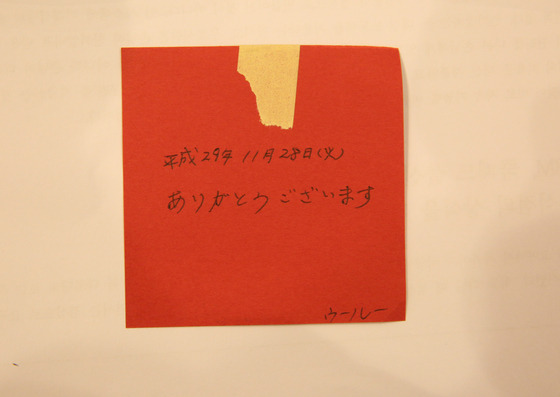 平成29年 11月28日(火)
ありがとうございます
ウールー